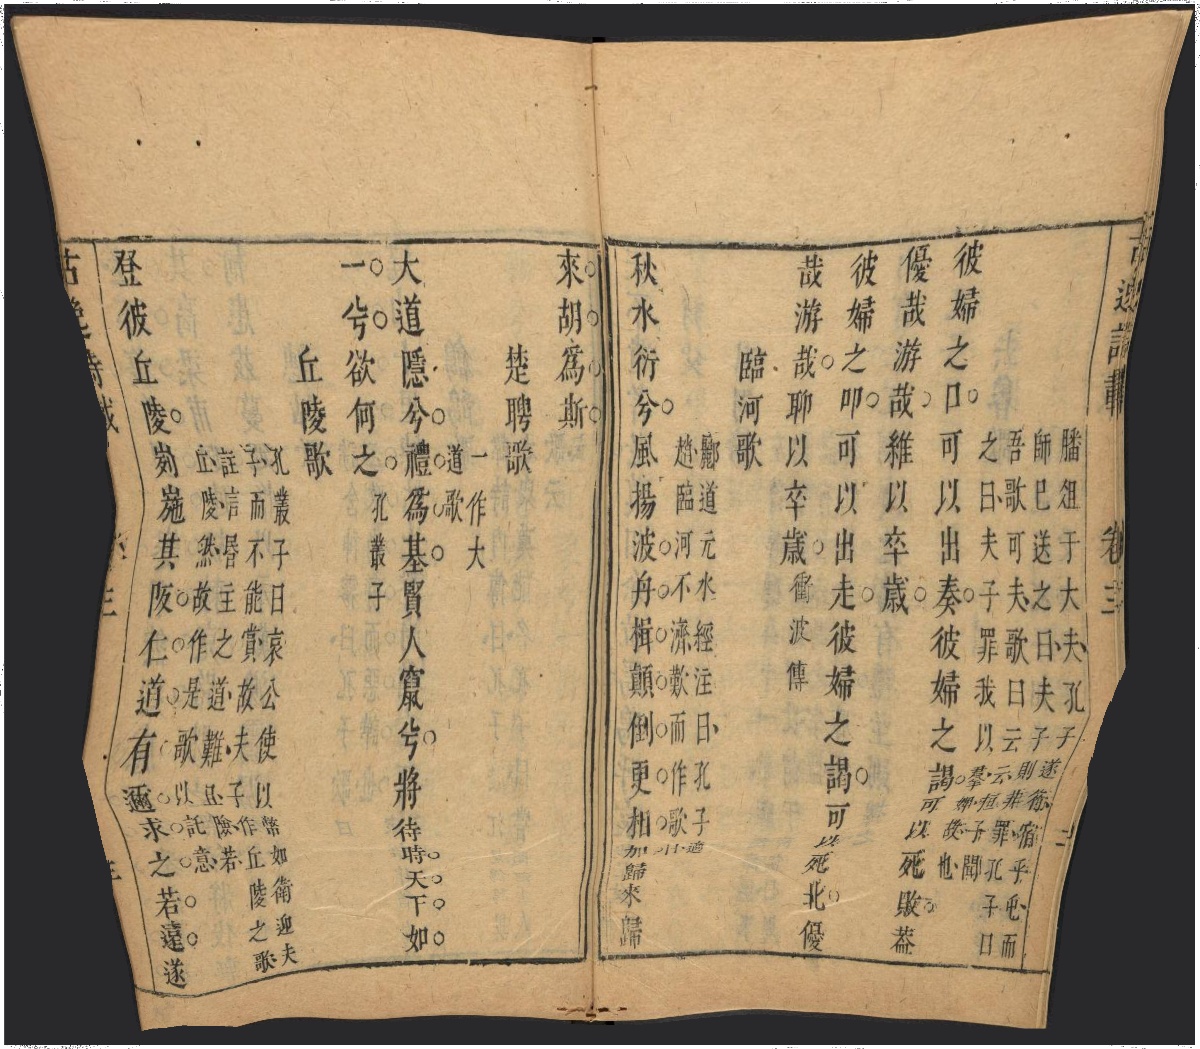 古逸詩載　卷三　二
膰俎于大夫孔子遂行宿乎屯而
師已送之曰夫子則非罪孔子曰
吾歌可夫歌曰云云桓子聞
之曰夫子罪我以羣婢故也
彼婦之口可以出奏彼婦之謁可以死敗葢
優哉游哉維以卒歲
彼婦之叩可以出走彼婦之謁可以死北優
哉游哉聊以卒歲衝波傳
臨河歌
酈道元水經注曰孔子適
趙臨河不濟歎而作歌
秋水衍兮風揚波舟楫顛倒更相加歸來歸
來胡爲斯
楚聘歌
一作大
道歌
大道隱兮禮爲基賢人竄兮將待時天下如
一兮欲何之孔叢子
丘陵歌
孔叢子曰哀公使以幣如衛迎夫
子而不能賞故夫子作丘陵之歌
註言昬主之道難且險若
丘陵然故作是歌以託意
登彼丘陵峛崺其阪仁道有邇求之若遠遂
古逸詩載　卷三　三